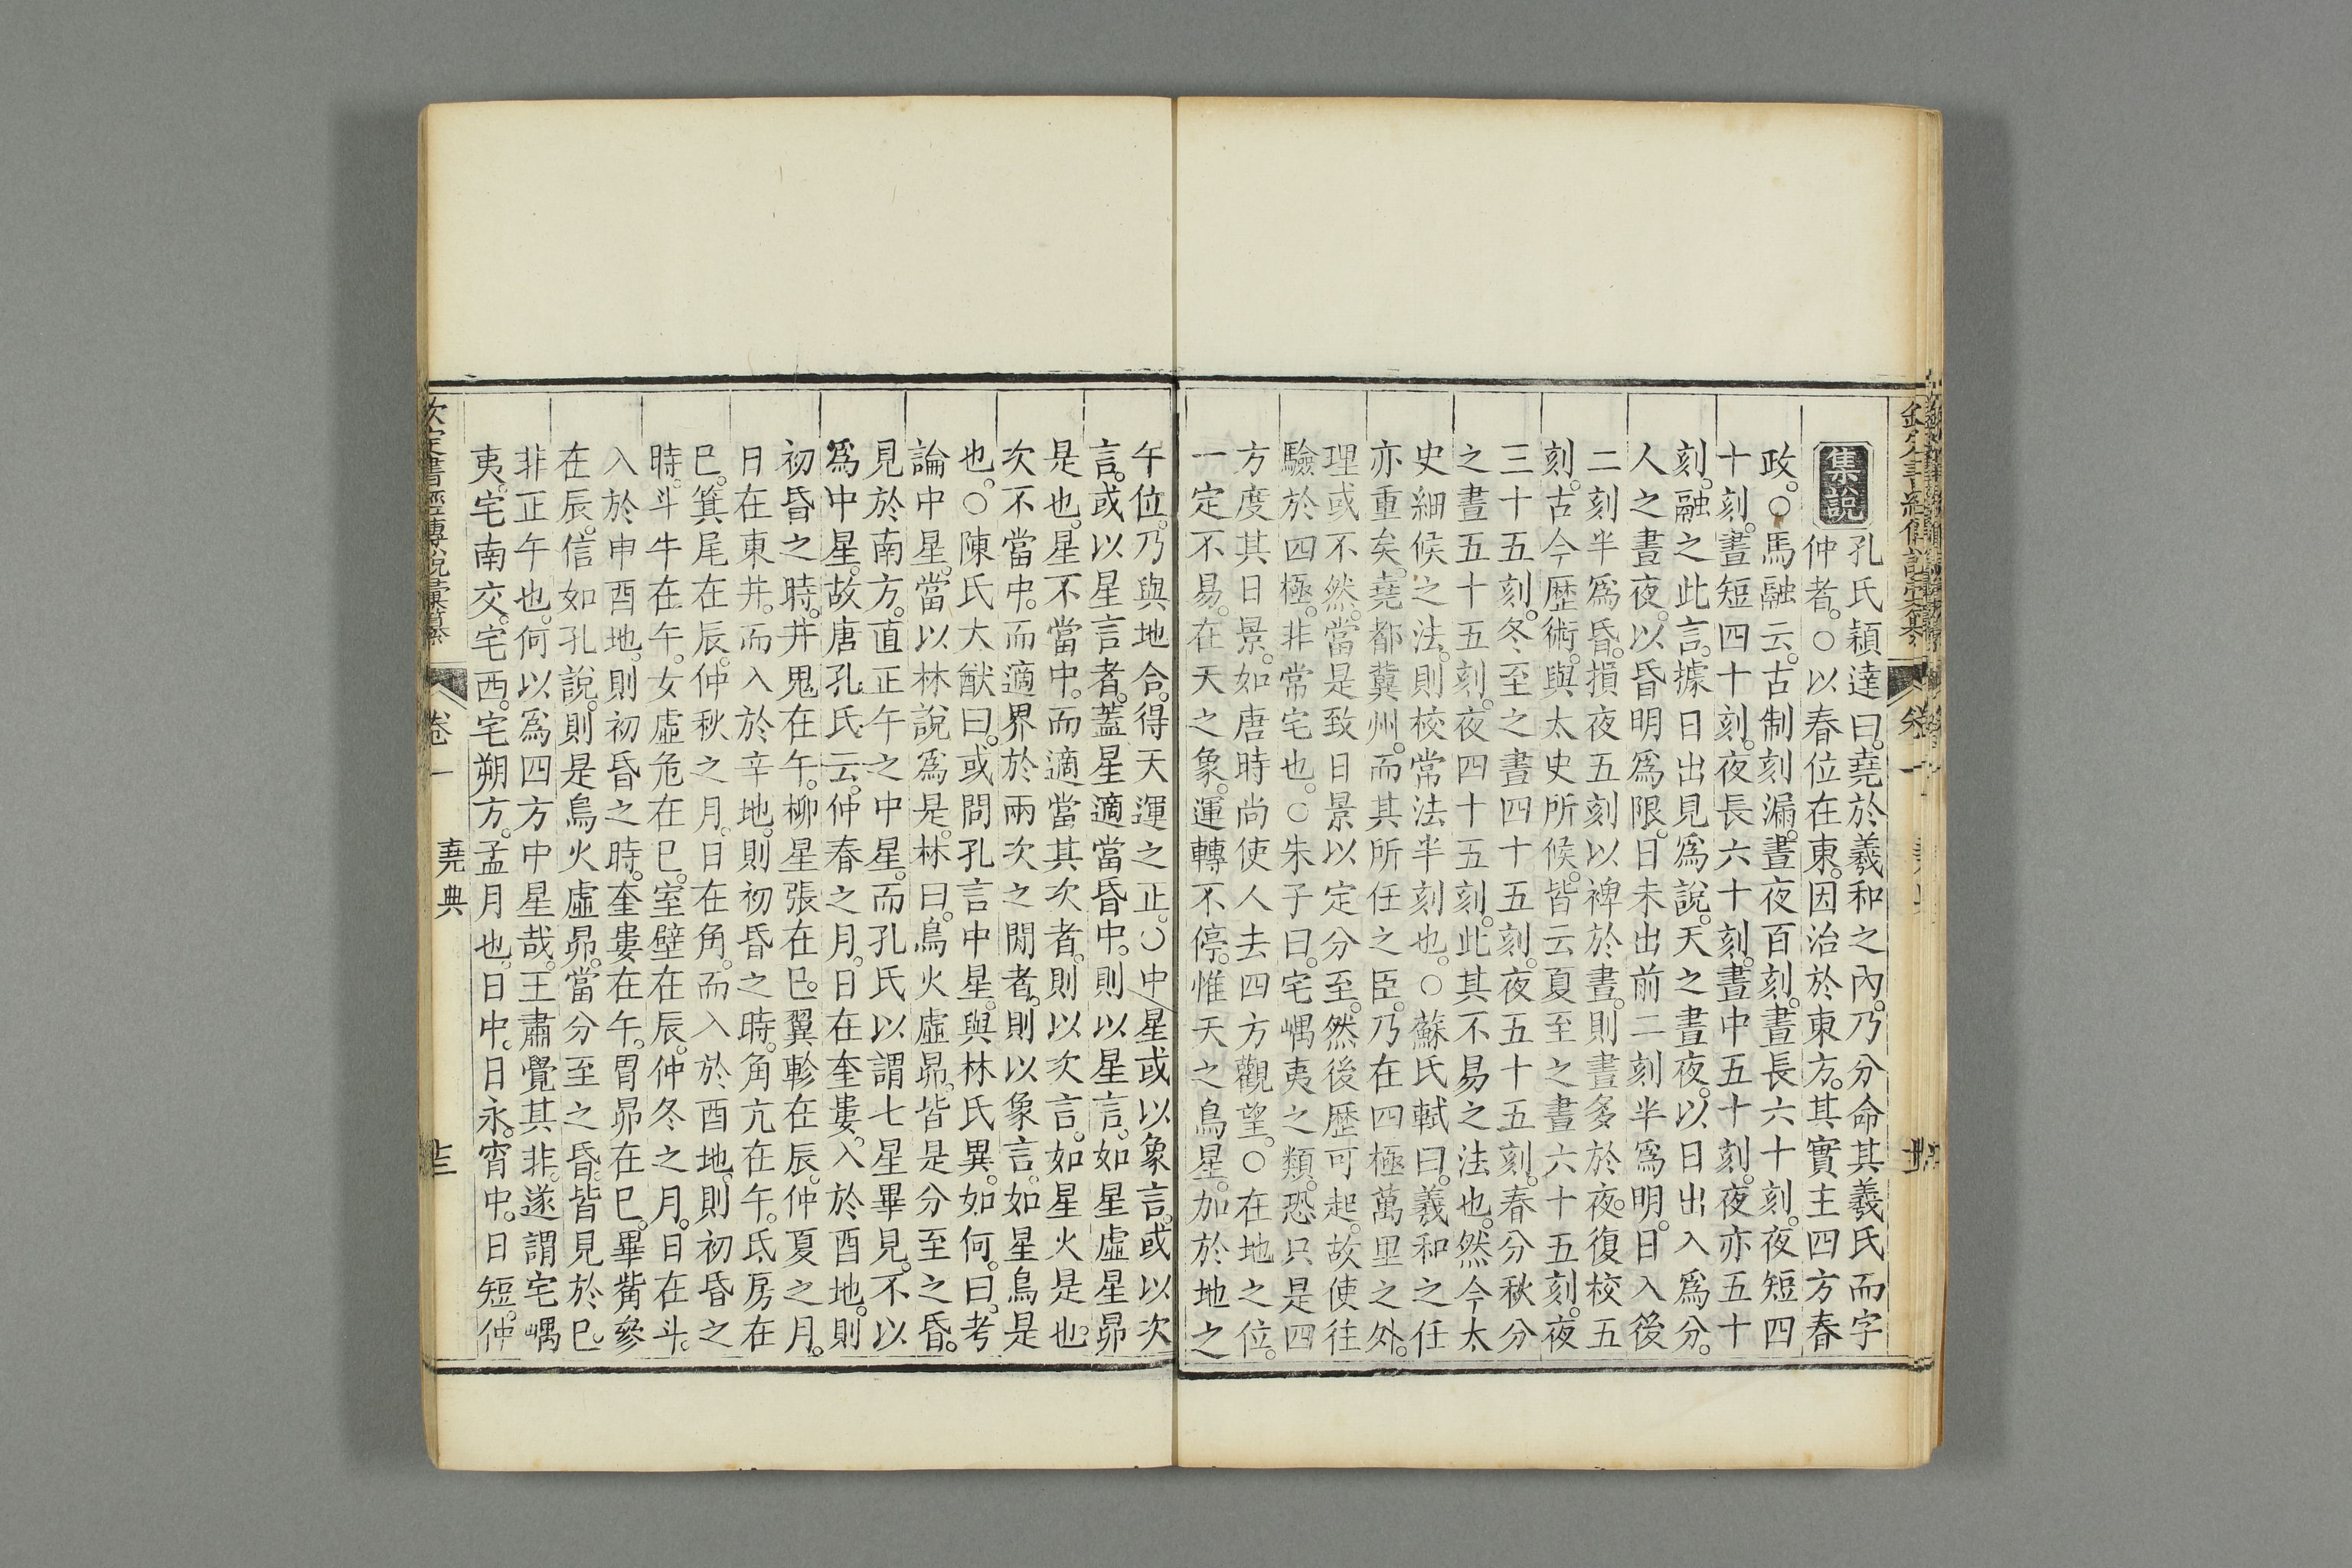 集說
孔氏穎達曰。堯於羲和之內。乃分命其羲氏而字
仲者。○以春位在東。因治於東方。其實主四方春
政。○馬融云。古制刻漏。晝夜百刻。晝長六十刻。夜短四
十刻。晝短四十刻。夜長六十刻。晝中五十刻。夜亦五十
刻。融之此言。據日出見爲說。天之晝夜。以日出入爲分。
人之晝夜。以昏明爲限。日未出前二刻半爲明。日入後
二刻半爲昏。損夜五刻以裨於晝。則晝多於夜。復校五
刻。古今歷術。與太史所候。皆云夏至之晝六十五刻。夜
三十五刻。冬至之晝四十五刻。夜五十五刻。春分秋分
之晝五十五刻。夜四十五刻。此其不易之法也。然今太
史細候之法。則校常法半刻也。○蘇氏軾曰。羲和之任
亦重矣。堯都冀州。而其所任之臣。乃在四極萬里之外。
理或不然。當是致日景以定分至。然後歷可起。故使往
驗於四極。非常宅也。○朱子曰。宅嵎夷之類。恐只是四
方度其日景。如唐時尚使人去四方觀望。○在地之位。
一定不易。在天之象。運轉不停。惟天之鳥星。加於地之
午位。乃與地合。得天運之正。○中星或以象言。或以次
言。或以星言者。蓋星適當昏中。則以星言。如星虛星昴
是也。星不當中。而適當其次者。則以次言。如星火是也。
次不當中。而適界於兩次之閒者。則以象言。如星鳥是
也。○陳氏大猷曰。或問孔言中星。與林氏異。如何。曰。考
論中星。當以林說爲是。林曰。鳥火虛昴。皆是分至之昏。
見於南方。直正午之中星。而孔氏以謂七星畢見。不以
爲中星。故唐孔氏云。仲春之月。日在奎婁。入於酉地。則
初昏之時。井鬼在午。柳星張在巳。翼軫在辰。仲夏之月。
日在東井。而入於辛地。則初昏之時。角亢在午。氐房在
巳。箕尾在辰。仲秋之月。日在角。而入於酉地。則初昏之
時。斗牛在午。女虛危在巳。室壁在辰。仲冬之月。日在斗。
入於申酉地。則初昏之時。奎婁在午。胃昴在巳。畢觜參
在辰。信如孔說。則是鳥火虛昴。當分至之昏。皆見於巳。
非正午也。何以爲四方中星哉。王肅覺其非。遂謂宅嵎
夷。宅南交。宅西。宅朔方。孟月也。日中。日永。宵中。日短。仲
欽定書經傳說彙纂 卷一 堯典